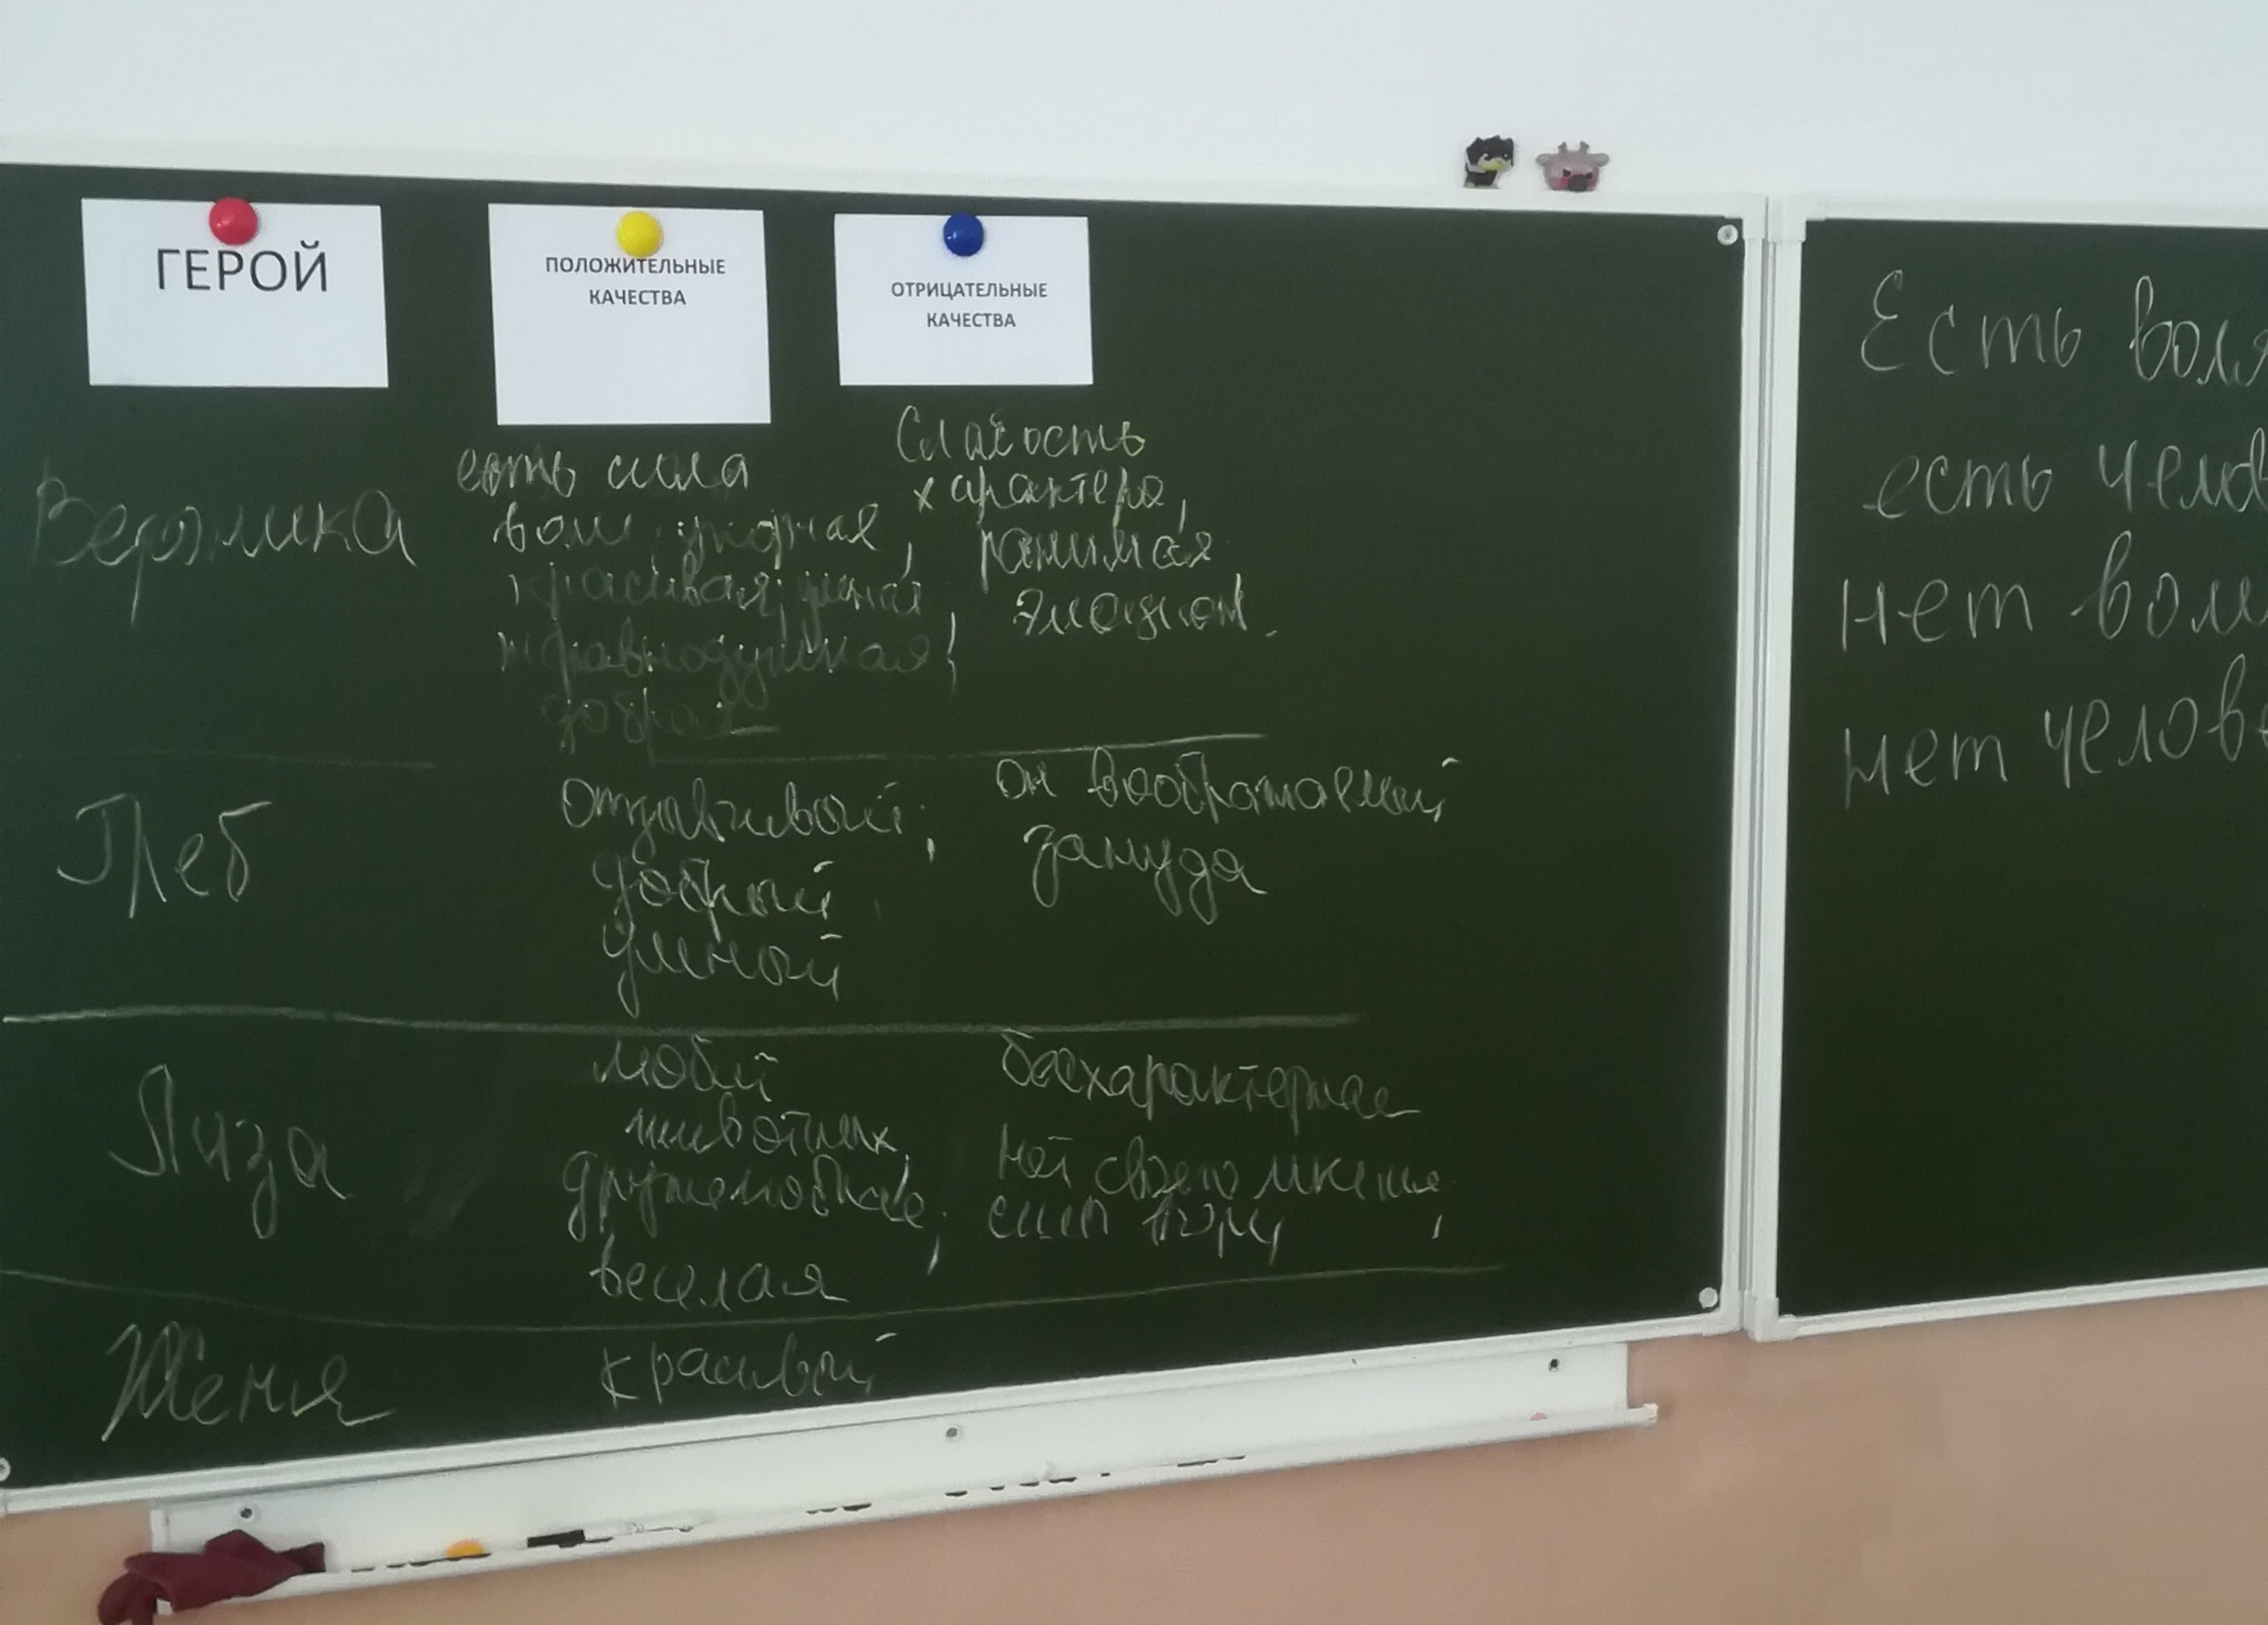 ГЕРОЙ
ПОЛОЖИТЕЛЬНЫЕ
КАЧЕСТВА
ОТРИЦАТЕЛЬНЫЕ
КАЧЕСТВА
Вероника
есть сила
воли, упорная,
красивая, умная,
неравнодушная,
добрая
Слабость
характера,
ранимая
эмоцион.
Глеб
отзывчивый,
добрый,
умный
он воображаемый
зануда
Лиза
любит
животных,
дружелюбная,
веселая
бесхарактерная
нет своего мнения,
Женя
красивый
Есть воля
есть челов
нет воли
нет челов